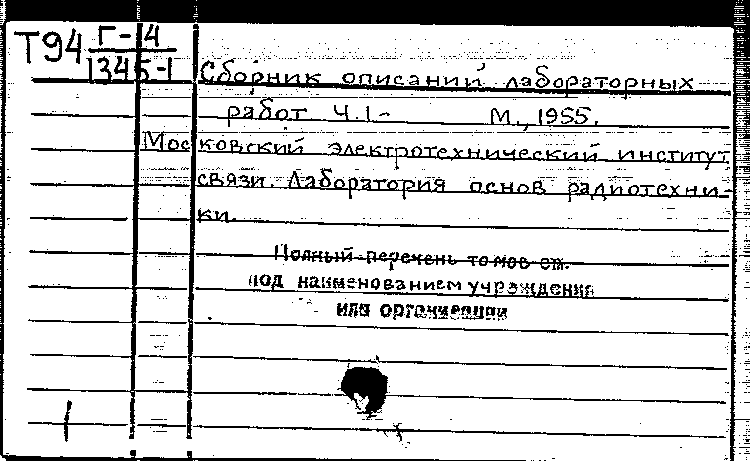 Т94 Г-14
1345-1
Сборник описаний лабораторных
работ Ч.1- М., 1955.
Московский электротехнический институт
связи. Лаборатория основ радиотехни-
ки.
Полный перечень томов см.
под наименованием учреждения
или организации
1